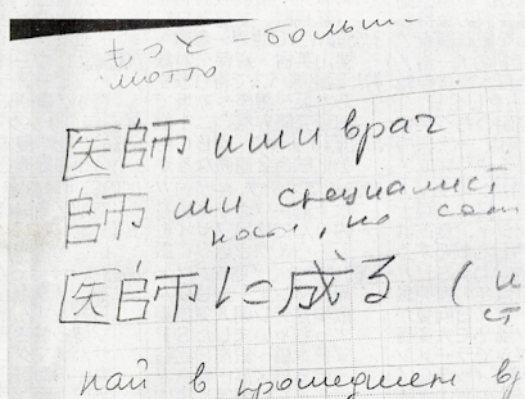 もっと - больш
мотто
医師 иши врач
師 ши специалист
но
医師に成る (и
ст
най в прошедшем вр